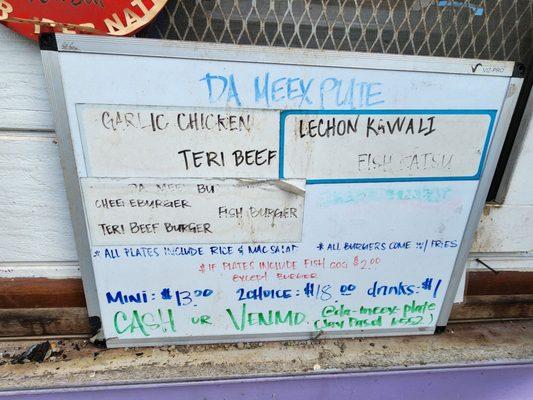 RED NATI
VIZ-PRO
DA MEEX PLATE
GARLIC CHICKEN
LECHON KAWALI
TERI BEEF
FISH KATSU
DA MEEX BU
CHEESEBURGER
FISH BURGER
TERI BEEF BURGER
* ALL PLATES INCLUDE RICE & MAC SALAD
* ALL BURGERS COME W/ FRIES
* IF PLATES INCLUDE FISH ADD $2.00
EXCEPT BURGER
MINI: $13.00 2CHOICE: $18.00 drinks: $1
CASH or VENMO @da-meex-plate